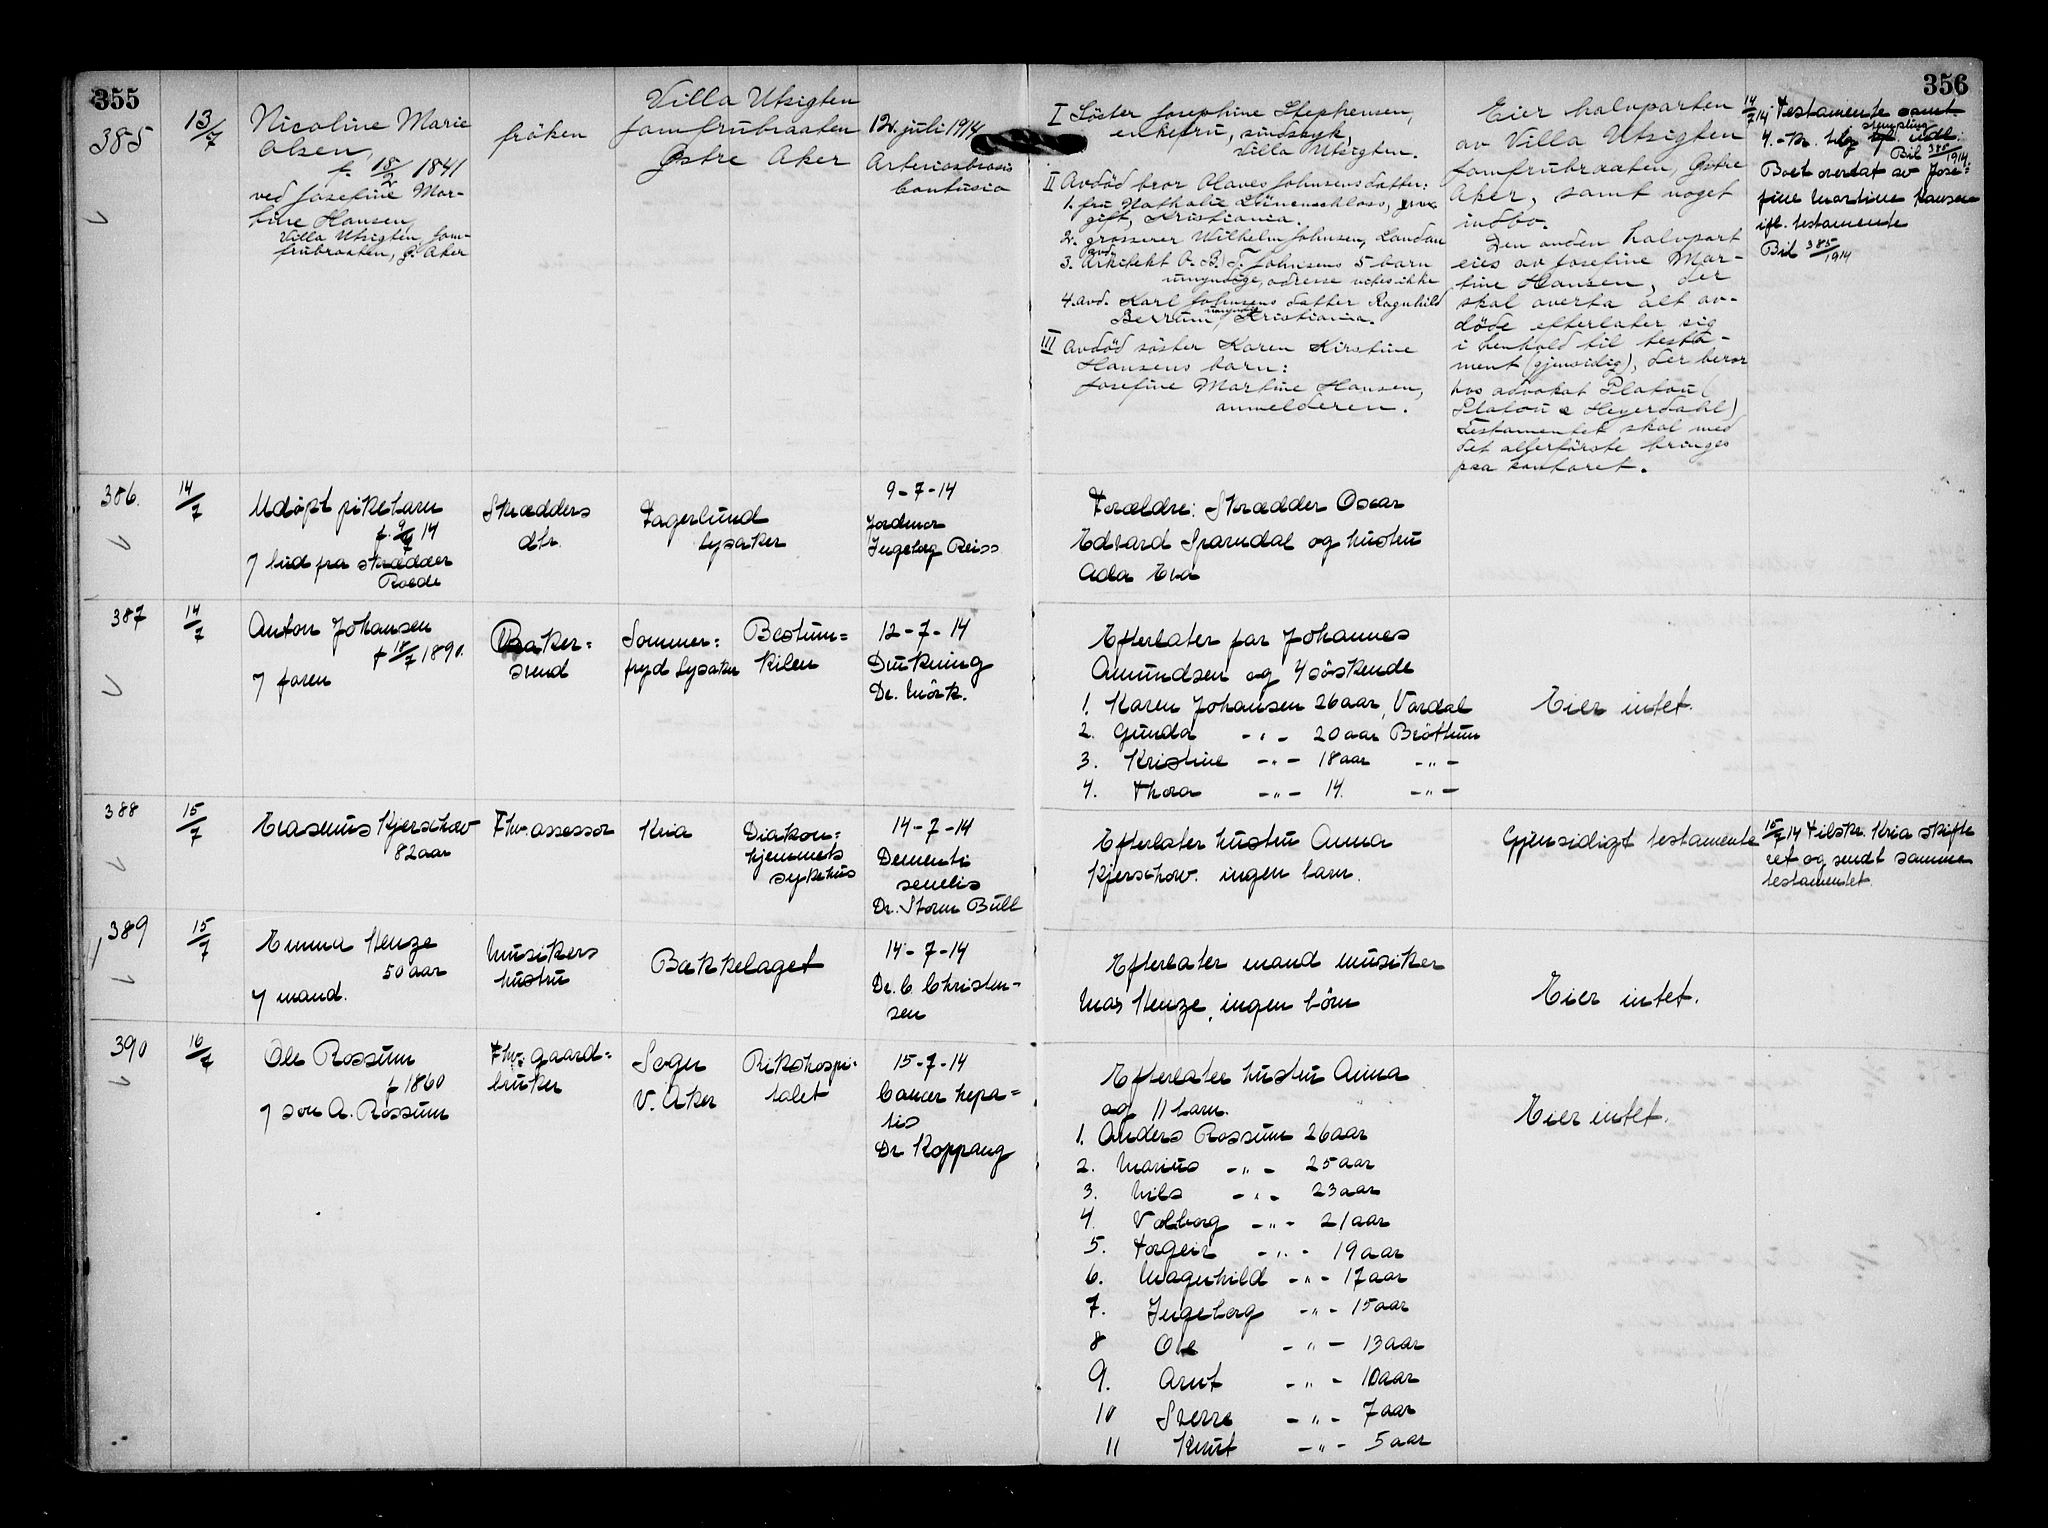 355
356
385
13/7
Nicoline Marie
Olsen,
f. 18/2 1841
ved Josefine Mar-
tine Hansen,
Villa Utsigten, Jom-
frubraaten, Ø. Aker
fröken
Villa Utsigten
Jomfrubraaten
Østre Aker
12. juli 1914
I Söster Josephine Stephensen,
enkefru, sindssyk,
Villa Utsigten.
II Avdöd bror Olaves Johnsens datter:
1. fru Nathalie
gift, Kristiania.
2. grosserer Wilhelm Johnsen, London
3. avd. Arkitekt O. B. T. Johnsens 5 barn
umyndige, adresse vites ikke
4. avd. Karl Johnsens datter Ragnhild
Berrum, umyndig Kristiania.
III Avdöd söster Karen Kirstine
Hansens barn:
Josefine Martine Hansen,
anmelderen.
Eier halvparten
av Villa Utsigten
Jomfrubraaten, Østre
Aker, samt noget
indbo.
Den anden halvpart
eies av Josefine Mar-
tine Hansen, der
skal overta alt av-
döde efterlater sig
i henhold til testa-
ment (gjensidig), der beror
hos advokat Platou (
Platou & Heyerdahl)
Testamentet skal med
det allerförste bringes
paa kontoret.
14/7 14 Testamente
Bil 385/1914.
Boet overdat av Jose-
fine Martine Hansen
ifl. testamente
Bil 385/1914
386.
14/7
Udöpt pikebarn
f. 9/7 14
7 bud fra skrædder
Roede
Skrædders
dtr.
Fagerlund
Lysaker
9-7-14
Jordmor
Ingeborg Reiss
Forældre: Skrædder Oscar
Edvard Sparndal og hustru
Ada Eva
387
14/7
Anton Johansen
f 18/7 1890.
7 faren
Baker=
svend
Sommer=
fryd Lysaker
Bestum=
kilen
12-7-14
Drukning
Dr. Mörk.
Efterlater far Johannes
Amundsen og 4 söskende
1. Karen Johansen 26 aar, Vardal
2. Gunda -"- 20 aar Bröttum
3. Kristine -"- 18 aar -"-
4. Thora -"- 14. -"-
Eier intet.
388
15/7
Erasmus Kjerschow
82 aar
Fhv. assessor
Kria
Diakon=
hjemmets
sykehus
14-7-14
Dementi
senelis
Dr. Storm Bull
Efterlater hustru Anna
Kjerschow. ingen barn.
Gjensidigt testamente
15/7 14 Tilskr. Kria skifte
ret og sendt samme
testamentet.
389
15/7
Emma Henze
50 aar
7 mand.
Musikers
hustru
Bækkelaget
14-7-14
Dr. C. Christen-
sen
Efterlater mand musiker
Max Henze, ingen börn
Eier intet.
390
16/7
Ole Rossum
f 1860
7 sön A. Rossum
Fhv. gaard=
bruker
Sogn
V. Aker
Rikshospi-
talet
15-7-14
Cancer hepa-
tis
Dr Koppang
Efterlater hustru Anna
og 11 barn.
1. Anders Rossum 26 aar
2. Marius -"- 25 aar
3. Nils -"- 23 aar
4. Valborg -"- 21 aar
5. Torgeir -"- 19 aar
6. Magnhild -"- 17 aar
7. Ingeborg -"- 15 aar
8 Ole -"- 13 aar
9. Arnt -"- 10 aar
10 Sverre -"- 7 aar
11 Knut -"- 5 aar
Eier intet.